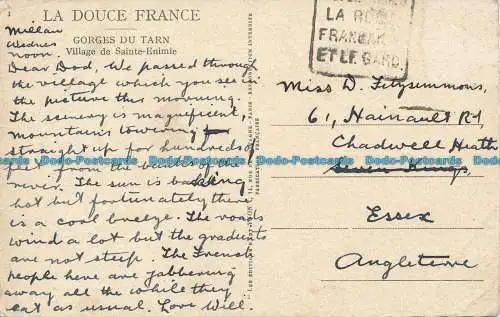 LA DOUCE FRANCE
GORGES DU TARN
Village de Sainte-Enimie
Millau
Wednes
noon.
Dear Dod, We passed through
the village which you see in
the picture this morning.
The scenery is magnificent,
mountains towering
straight up for hundreds of
feet from the banks of the
river. The sun is baking
hot but fortunately there
is a cool breeze. The roads
wind a lot but the gradients
are not steep. The French
people here are jabbering
away all the while they
eat as usual. Love Will.
LA
FRANÇAISE
ET LE GARD
Miss D. Fitzsimmons,
61, Hainault Rd
Chadwell Heath
Seven Kings
Essex
Angleterre
Dodo-Postcards Dodo-Postcards Dodo-Postcards Dodo-Postcards Dodo-Postcards Dodo-Postcards